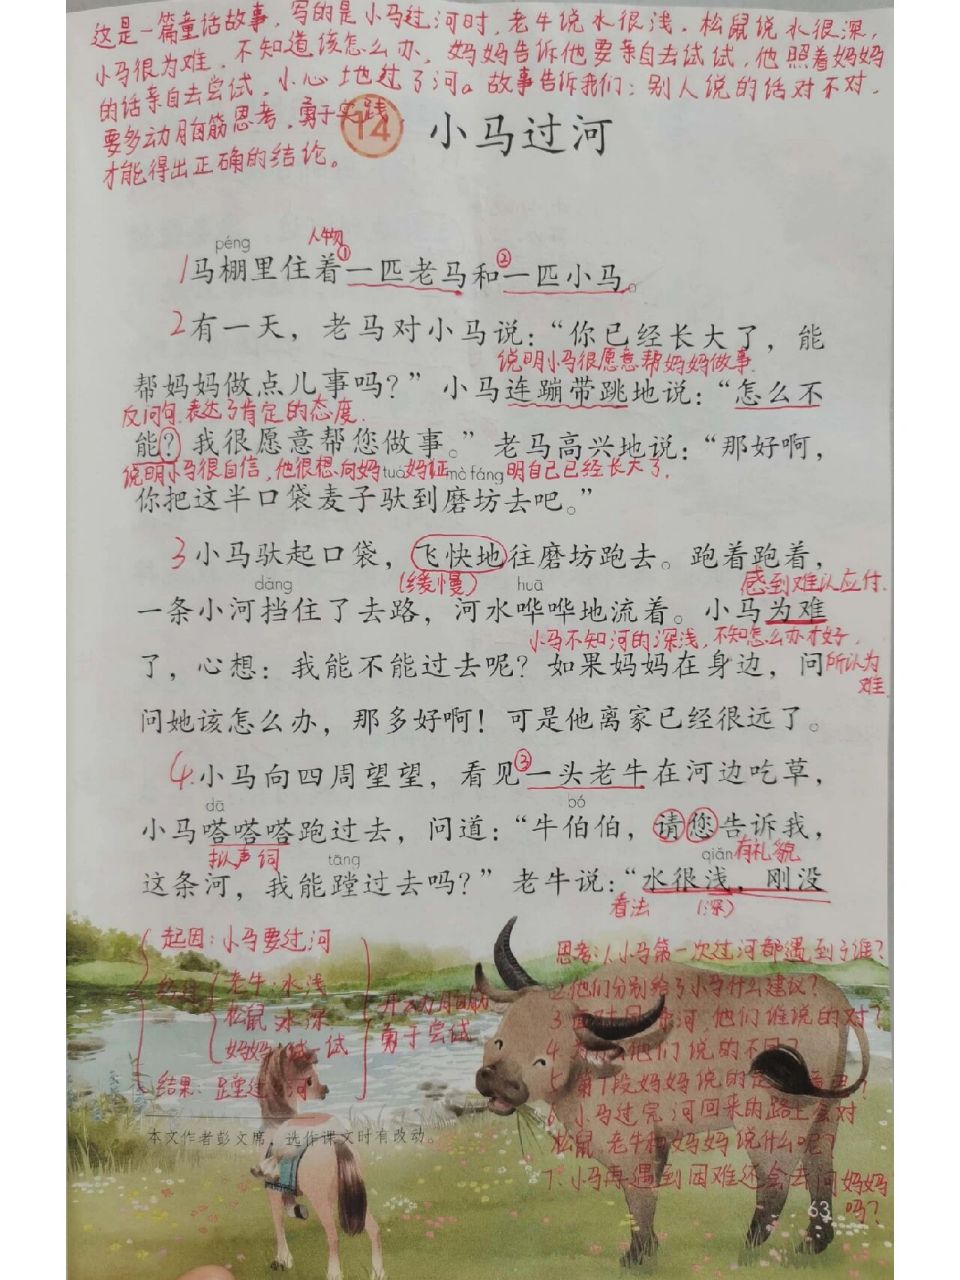 这是一篇童话故事，写的是小马过河时，老牛说水很浅，松鼠说水很深，
小马很为难，不知道该怎么办，妈妈告诉他要亲自去试试，他照着妈妈
的话亲自去尝试，小心地过了河。故事告诉我们：别人说的话对不对，
要多动脑筋思考，勇于实践
才能得出正确的结论。
14 小马过河
péng 人物 ① ②
1马棚里住着一匹老马和一匹小马。
2有一天，老马对小马说：“你已经长大了，能
说明小马很愿意帮妈妈做事
帮妈妈做点儿事吗？”小马连蹦带跳地说：“怎么不
反问句,表达了肯定的态度.
能？我很愿意帮您做事。”老马高兴地说：“那好啊，
说明小马很自信，他很想向妈妈证明自己已经长大了.
tuó mò fáng
你把这半口袋麦子驮到磨坊去吧。”
3小马驮起口袋，飞快地往磨坊跑去。跑着跑着，
dǎng (缓慢) huā 感到难以应付.
一条小河挡住了去路，河水哗哗地流着。小马为难
小马不知河的深浅，不知怎么办才好，
了，心想：我能不能过去呢？如果妈妈在身边，问
所以为
难
问她该怎么办，那多好啊！可是他离家已经很远了。
③
4.小马向四周望望，看见一头老牛在河边吃草，
dā bó
小马嗒嗒嗒跑过去，问道：“牛伯伯，请您告诉我，
拟声词 tāng qiǎn 有礼貌
这条河，我能蹚过去吗？”老牛说：“水很浅，刚没
看法 (深)
起因：小马要过河
老牛：水浅
松鼠 水深
妈妈 试一试
勇于尝试
结果：蹚过 河
思考:1.小马第一次过河都遇到了谁？
2他们分别给了小马什么建议？
3 面对同 河,他们谁说的对？
4 他们说的不同？
5 第7段妈妈说的是
6 小马过完河回来的路上会对
松鼠、老牛和妈妈说什么呢？
7.小马再遇到困难还会去问妈妈
吗？
本文作者彭文席，选作课文时有改动。
63